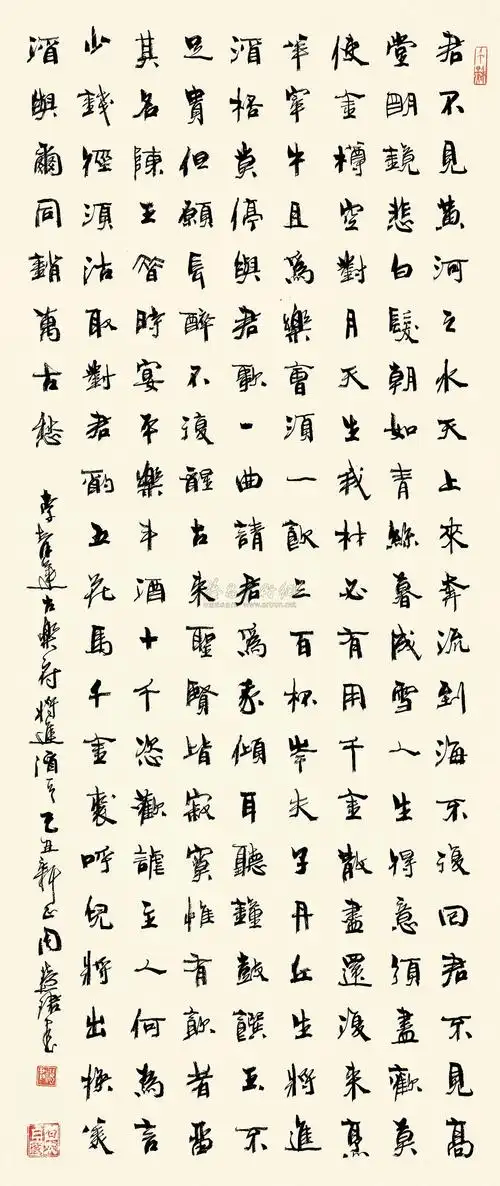 君不見黄河之水天上來奔流到海不復回君不見高
堂明鏡悲白髮朝如青絲暮成雪人生得意須盡歡莫
使金樽空對月天生我材必有用千金散盡還復来烹
羊宰牛且爲樂會須一飲三百杯岑夫子丹丘生將進
酒杯莫停與君歌一曲請君爲我傾耳聽鐘鼓饌玉不
足貴但願長醉不復醒古来聖賢皆寂寞惟有飲者留
其名陳王昔時宴平樂斗酒十千恣歡謔主人何為言
少錢徑須沽取對君酌五花馬千金裘呼兒將出換美
酒與爾同銷萬古愁
李青蓮古樂府將進酒 己丑新正周慧珺書